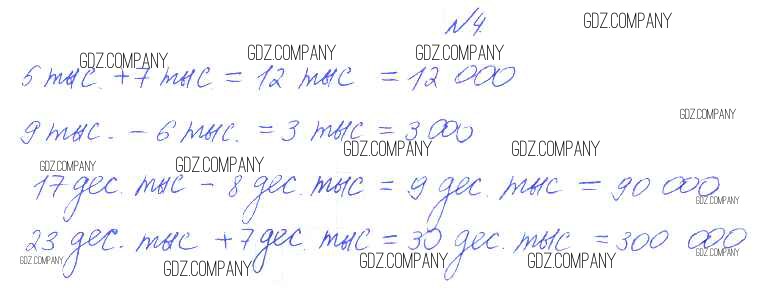 №4.
GDZ.COMPANY
GDZ.COMPANY GDZ.COMPANY GDZ.COMPANY
5 тыс. + 7 тыс. = 12 тыс = 12 000
GDZ.COMPANY
9 тыс. - 6 тыс. = 3 тыс = 3 000
GDZ.COMPANY GDZ.COMPANY
GDZ.COMPANY GDZ.COMPANY
17 дес. тыс - 8 дес. тыс = 9 дес. тыс = 90 000
GDZ.COMPANY
23 дес. тыс + 7 дес. тыс = 30 дес. тыс = 300 000
GDZ.COMPANY GDZ.COMPANY GDZ.COMPANY GDZ.COMPANY GDZ.COMPANY